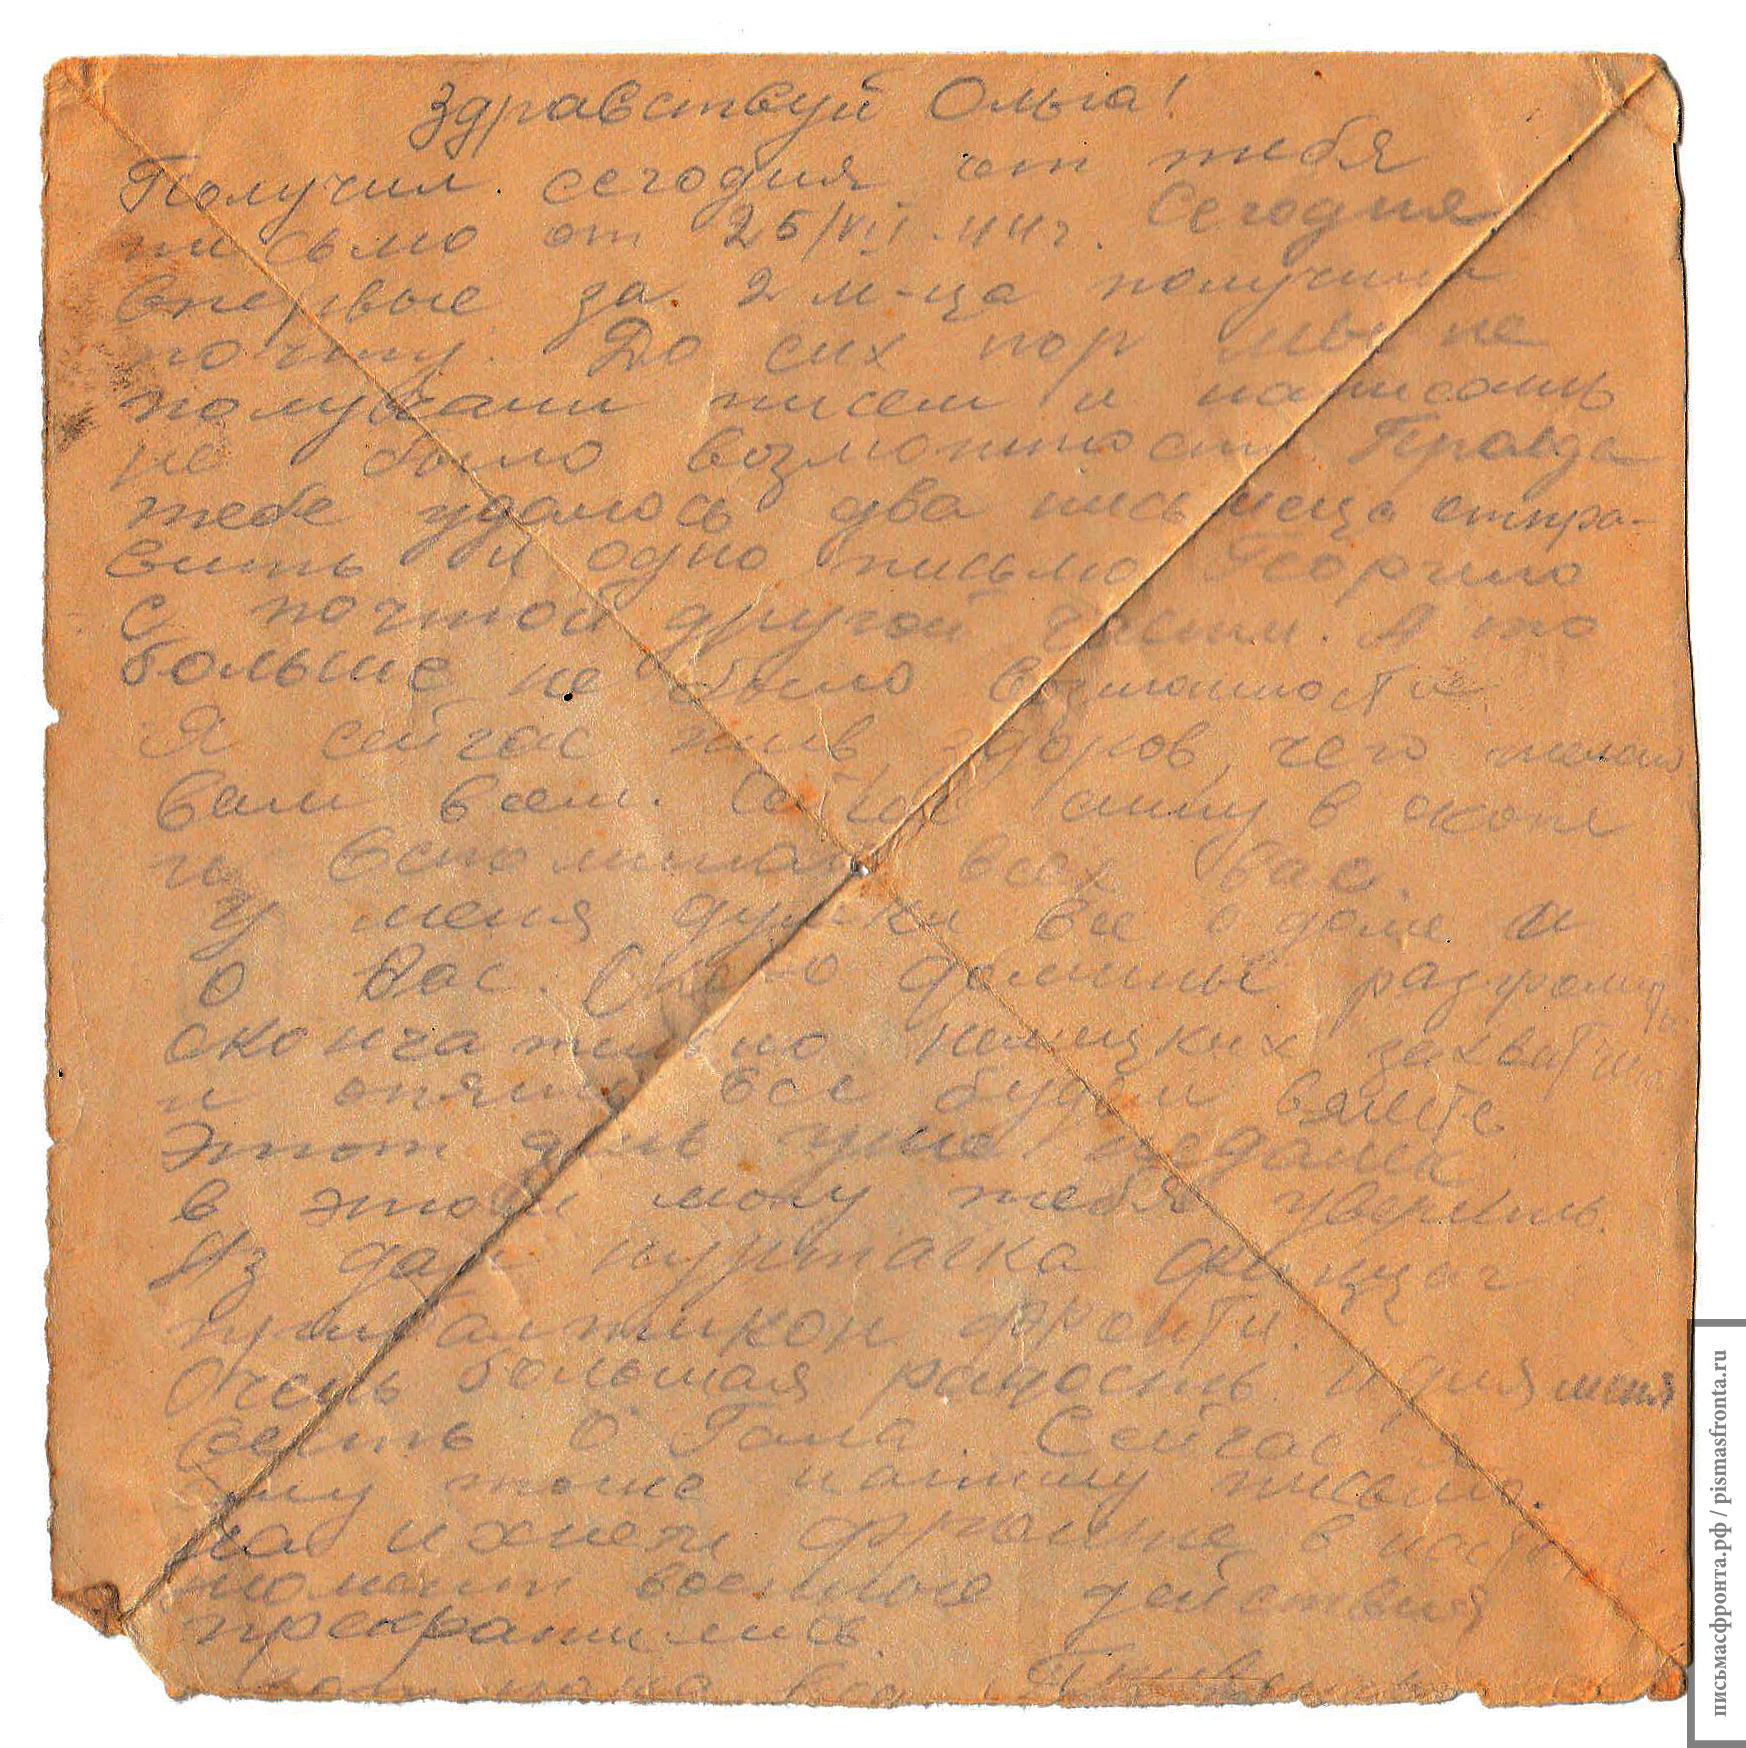 Здравствуй Ольга!
Получил сегодня от тебя
письмо от 25/VII-44г. Сегодня
впервые за 2 м-ца получили
почту. До сих пор мы не
получали писем и написать
не было возможности. Правда
тебе удалось два письмеца отпра-
вить и одно письмо
с почтой другой части. А то
больше не было возможности.
Я сейчас жив, здоров, чего желаю
Вам всем. Сейчас сижу в окопе
и вспоминаю всех вас.
У меня думки все о доме и
о Вас. должны разгромить
окончательно немецких
и опять все будем вместе
Этот день уже недалек
в этом могу тебя уверить.
фронт.
Очень большая радость и для меня
весть о Сейчас я
ему тоже напишу письмо.
На ихнем фронте в
момент военные действия
прекратились.